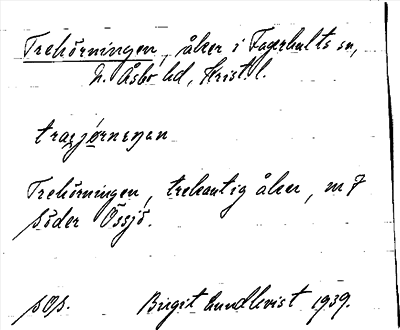 Trehörningen, åker i Fagerhults sn,
N. Åsbo hd, Krist. l.
Trehörningen, trekantig åker, m f
söder Össjö.
Birgit Lundkvist 1939.